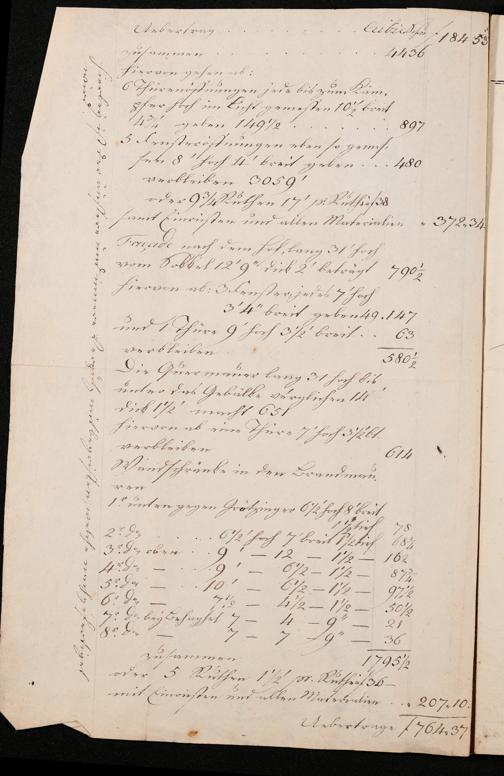 Uebertrag . . . . . . . . Cubicschu f 184 53
zusammen . . . . . . . . 4436
hiervon gehen ab:
6 Thüröffnungen jede bis zum Käm-
pfer hoch im Licht gemessen 10½ breit
4¾ geben 149½ . . . . . . 897
5 Fensteröffnungen eben so gemes-
sen 8' hoch 4' breit geben . . . 480
verbleiben 3059'
oder 9¾ Ruthen 17' pr. Ruthe f 38
samt Einrüsten und allen Materialien " 372.34
Façade nach dem Hof, lang 31' hoch
vom Sokkel 12' 9" dick 2' beträgt 790½
hiervon ab: 3 Fenster, jedes 7' hoch
3' 4" breit geben 49. 147
und 1 Thüre 9' hoch 3½' breit . . 63
verbleiben 580½
Die Quermauer lang 31 hoch bis
unter das Gebälke verglichen 14'
dick 1½' macht 651
hiervon ab eine Thüre 7' hoch 3½' bt.
verbleiben 614
Wandschränke in den Brandmau-
ren
1º unten gegen Grötzinger 6½ hoch 8' breit
1½' tief 78
2º do . . . . 6½' hoch 7' breit 1½' tief 68¼
3º do oben . . 9 — 12 — 1½ — 162
4º do — . . 9' — 6½ — 1½ — 87¾
5º do — . . 10' — 6½ — 1½ — 97½
6º do — 7½ — 4½ — 1½ — 50½
7º do bey 7 — 4 — 9" — 21
8º do — 7 — 7 — 9" — 36
zusammen 1795½
oder 5 Ruthen 1½' pr. Ruthe f 36 —
mit Einrüsten und allen Materialien . . " 207.10.
Uebertrage f 764.37